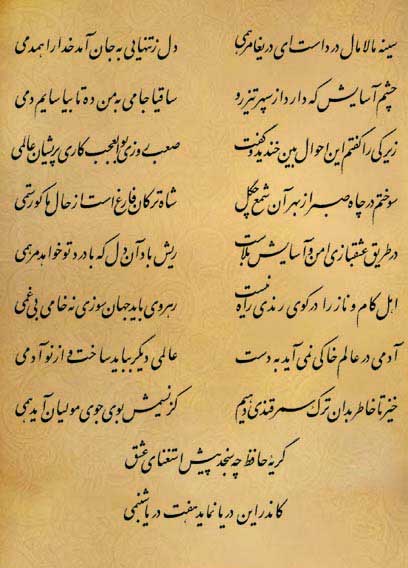 سینه مالامال درد است ای دریغا مرهمی دل ز تنهایی به جان آمد خدا را همدمی
چشم آسایش که دارد از سپهر تیزرو ساقیا جامی به من ده تا بیاسایم دمی
زیرکی را گفتم این احوال بین خندید و گفت صعب روزی بوالعجب کاری پریشان عالمی
سوختم در چاه صبر از بهر آن شمع چگل شاه ترکان فارغ است از حال ما کو رستمی
در طریق عشقبازی امن و آسایش بلاست ریش باد آن دل که با درد تو خواهد مرهمی
اهل کام و ناز را در کوی رندی راه نیست رهروی باید جهان سوزی نه خامی بی غمی
آدمی در عالم خاکی نمی آید به دست عالمی دیگر بباید ساخت و از نو آدمی
خیز تا خاطر بدان ترک سمرقندی دهیم کز نسیمش بوی جوی مولیان آید همی
گریه حافظ چه سنجد پیش استغنای عشق
کاندر این دریا نماید هفت دریا شبنمی